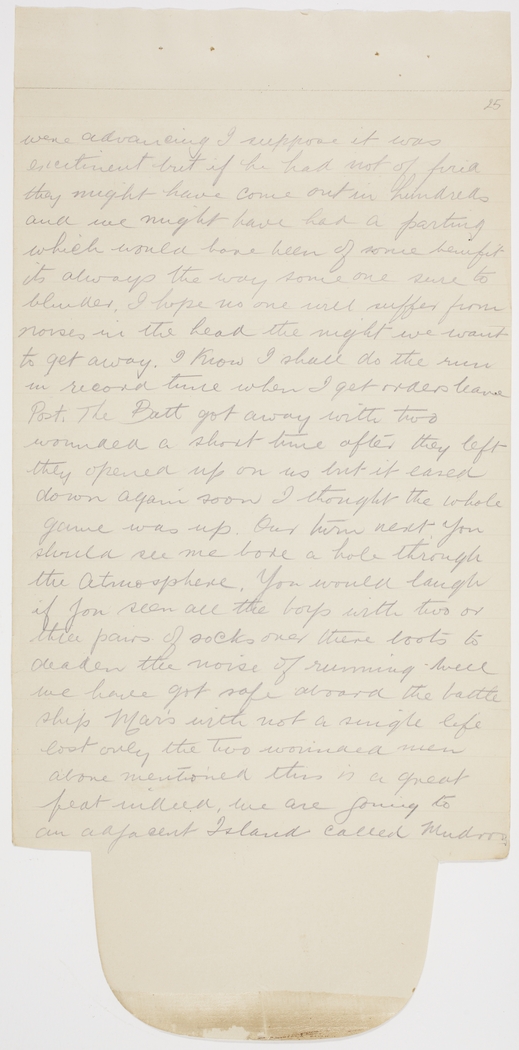 25
were advancing I suppose it was
excitement but if he had not of fired
they might have come out in hundreds
and we might have had a parting
which would have been of some benefit
its always the way some one sure to
blunder. I hope no one will suffer from
noises in the head the night we want
to get away. I Know I shall do the run
in record time when I get orders leave
Post. The Batt got away with two
wounded a short time after they left
they opened up on us but it eased
down again soon I thought the whole
game was up. Our turn next. You
should see me bore a hole through
the Atmosphere. You would laugh
if you seen all the boys with two or
three pairs of socks over there boots to
deaden the noise of running. well
we have got safe aboard the battle
ship Mars with not a single life
lost only the two wounded men
above mentioned this is a great
feat indeed. we are going to
an adjacent Island called Mudros